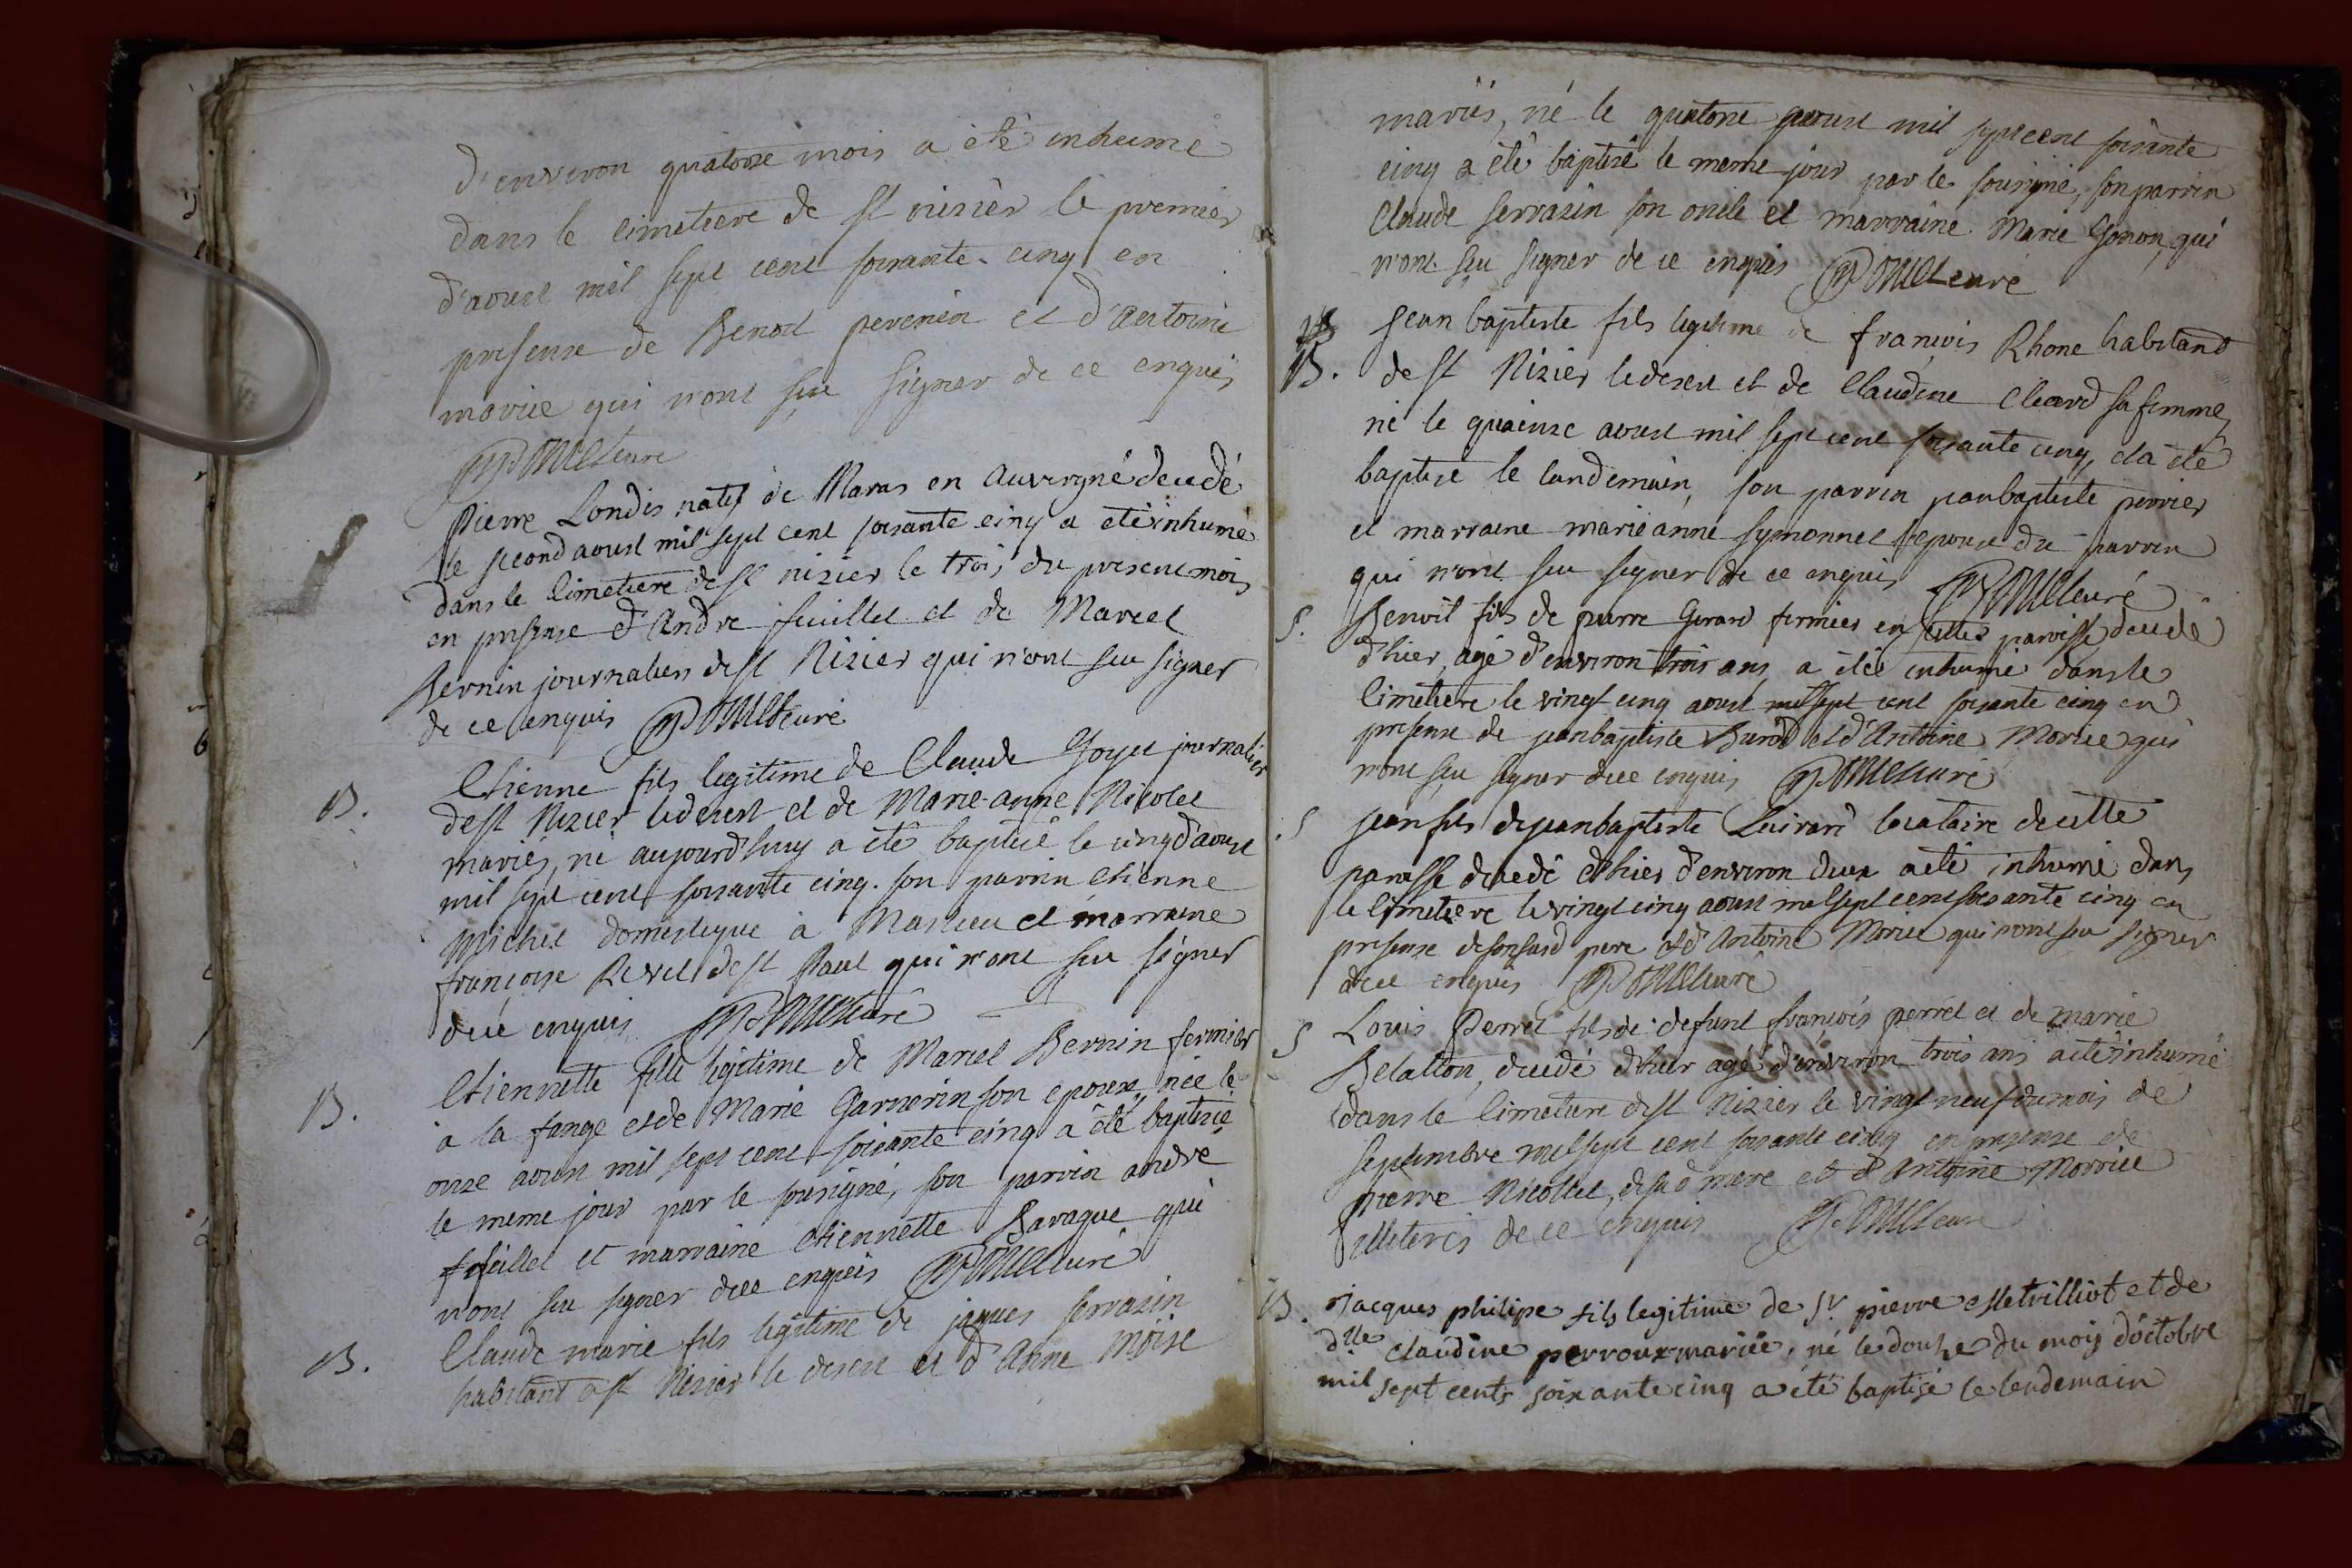 d'environ quatorze mois a été inhumé
dans le cimetiere de st nizièr le premier
d'aoust mil sept cent soixante-cinq en
presense de Benoit perenin et d'Antoine
morice qui n'ont sçu signer de ce enquis
curé
Pierre Londis natif de Maras en Auvergne decedé
le second aoust mil sept cent soixante cinq a eté inhumé
dans le cimetiere de st nizier le trois du present mois
en presense d'André feuillet et de Marcel
Bernin journalier de st Nizier qui n'ont sçu signer
de ce enquis curé
B. Etienne fils legitime de Claude Goyet journalier
de st Nizier le desert et de Marie-anne Nicolet
mariés, né aujourd'huy a été baptisé le cinq d'aoust
mil sept cent soixante cinq. son parrin etienne
Michel domestique à Marlieu et marraine
françoise Revel de st Paul qui n'ont sçu signer
de ce enquis curé
B. Etiennette fille legitime de Marcel Bernin fermier
à la fange et de Marie Garnerin son epouse, née le
onze aoust mil sept cent soixante cinq a été baptisée
le meme jour par le sousigné, son parrin andré
feuillet et marraine etiennette Baraque qui
n'ont sçu signer de ce enquis curé
B. Claude marie fils legitime de jaques serrasin
habitant à st Nizier le desert et d'Anne Moise
mariés, né le quatorze aoust mil sept cent soixante
cinq a été baptisé le meme jour par le sousigné, son parrin
Claude serrasin son oncle et marraine Marie Gonon, qui
n'ont sçu signer de ce enquis curé
B. Jean baptiste fils legitime de françois Rhone habitand
de st Nizier le desert et de Claudine Cleard sa femme,
né le quinze aoust mil sept cent soixante cinq, et a été
baptisé le landemain, son parrin jeanbaptiste perrier
et marraine marieanne symonnet epouse du parrin
qui n'ont sçu signer de ce enquis curé
S. Benoit fils de pierre Girard fermier en cette paroisse decedé
d'hier, agé d'environ trois ans, a été inhumé dans le
cimetiere le vingt cinq aoust mil sept cent soixante cinq en
presense de jeanbaptiste Burod et d'Antoine Morice qui
n'ont sçu signer de ce enquis curé
S jean fils de jeanbaptiste Luirard locataire de cette
paroisse decedé d'hier d'environ deux a été inhumé dans
le cimetiere le vingt cinq aoust mil sept cent soixante cinq en
presense de son susd pere et d'Antoine Morice qui n'ont sçu signer
de ce enquis curé
S Louis Perret fils de defunt françois perret et de marie
Belatton, decedé d'hier agé d'environ trois ans a été inhumé
dans le cimetiere de st Nizier le vingt neuf du mois de
septembre mil sept cent soixante cinq en presense de
pierre Nicollet, de sad mere et d'Antoine Morrice
illiterés de ce enquis curé
B. Jacques philipe fils legitime de Sr pierre Metrilliot et de
dlle claudine perroux mariés, né le douze du mois d'octobre
mil sept cents soixante cinq a été baptisé le lendemain